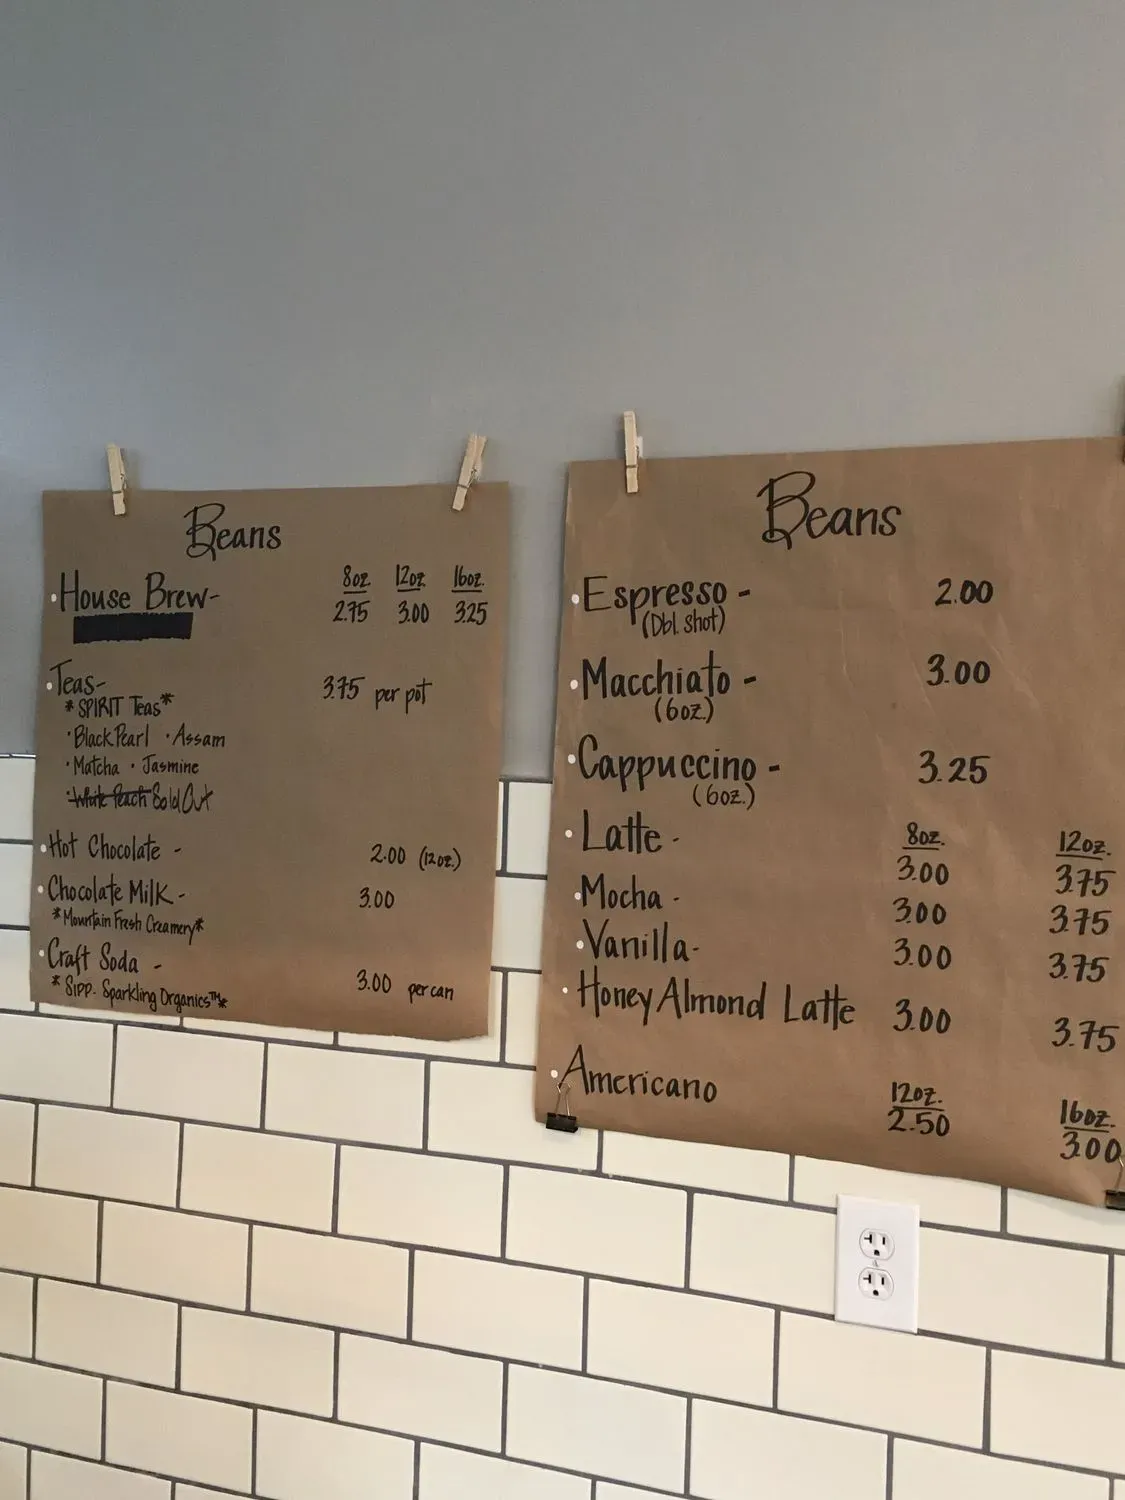 Beans
8oz. 12oz. 16oz.
House Brew- 2.75 3.00 3.25
Teas- 3.75 per pot
*SPIRIT Teas*
· Black Pearl · Assam
· Matcha · Jasmine
· White Peach Sold Out
Hot Chocolate - 2.00 (12oz.)
Chocolate Milk - 3.00
*Mountain Fresh Creamery*
Craft Soda - 3.00 per can
*Sipp. Sparkling Organics™*
Beans
Espresso - 2.00
(Dbl. shot)
Macchiato - 3.00
(6oz.)
Cappuccino - 3.25
(6oz.)
8oz. 12oz.
Latte - 3.00 3.75
Mocha - 3.00 3.75
Vanilla- 3.00 3.75
Honey Almond Latte 3.00 3.75
12oz. 16oz.
Americano 2.50 3.00